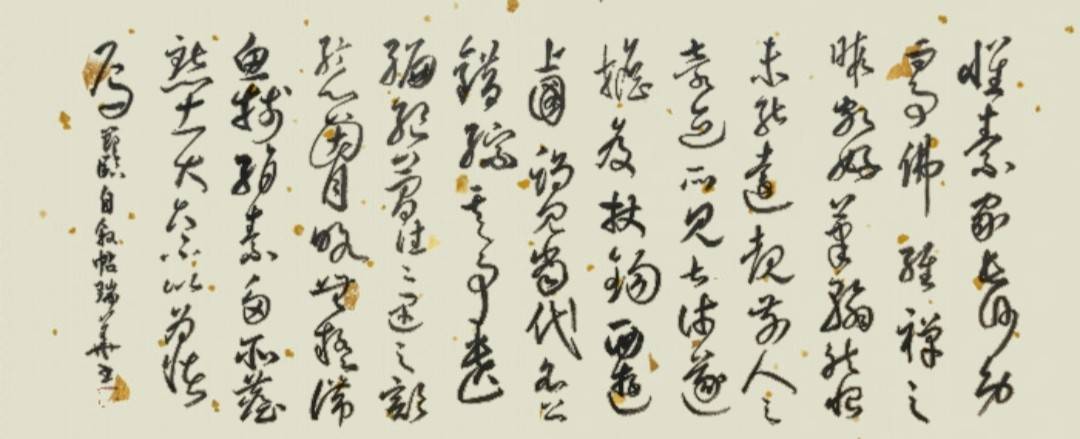 懷素家長沙幼
而事佛經禪之
暇頗好筆翰然恨
未能遠覩前人之
奇迹所見甚淺遂
擔笈杖錫西遊
上國謁見當代名公
錯綜其事遺
編絕簡往往遇之豁
然心胸略無疑滯
魚牋絹素多所塵
點士大夫不以為怪
焉 節臨自敘帖瑞華